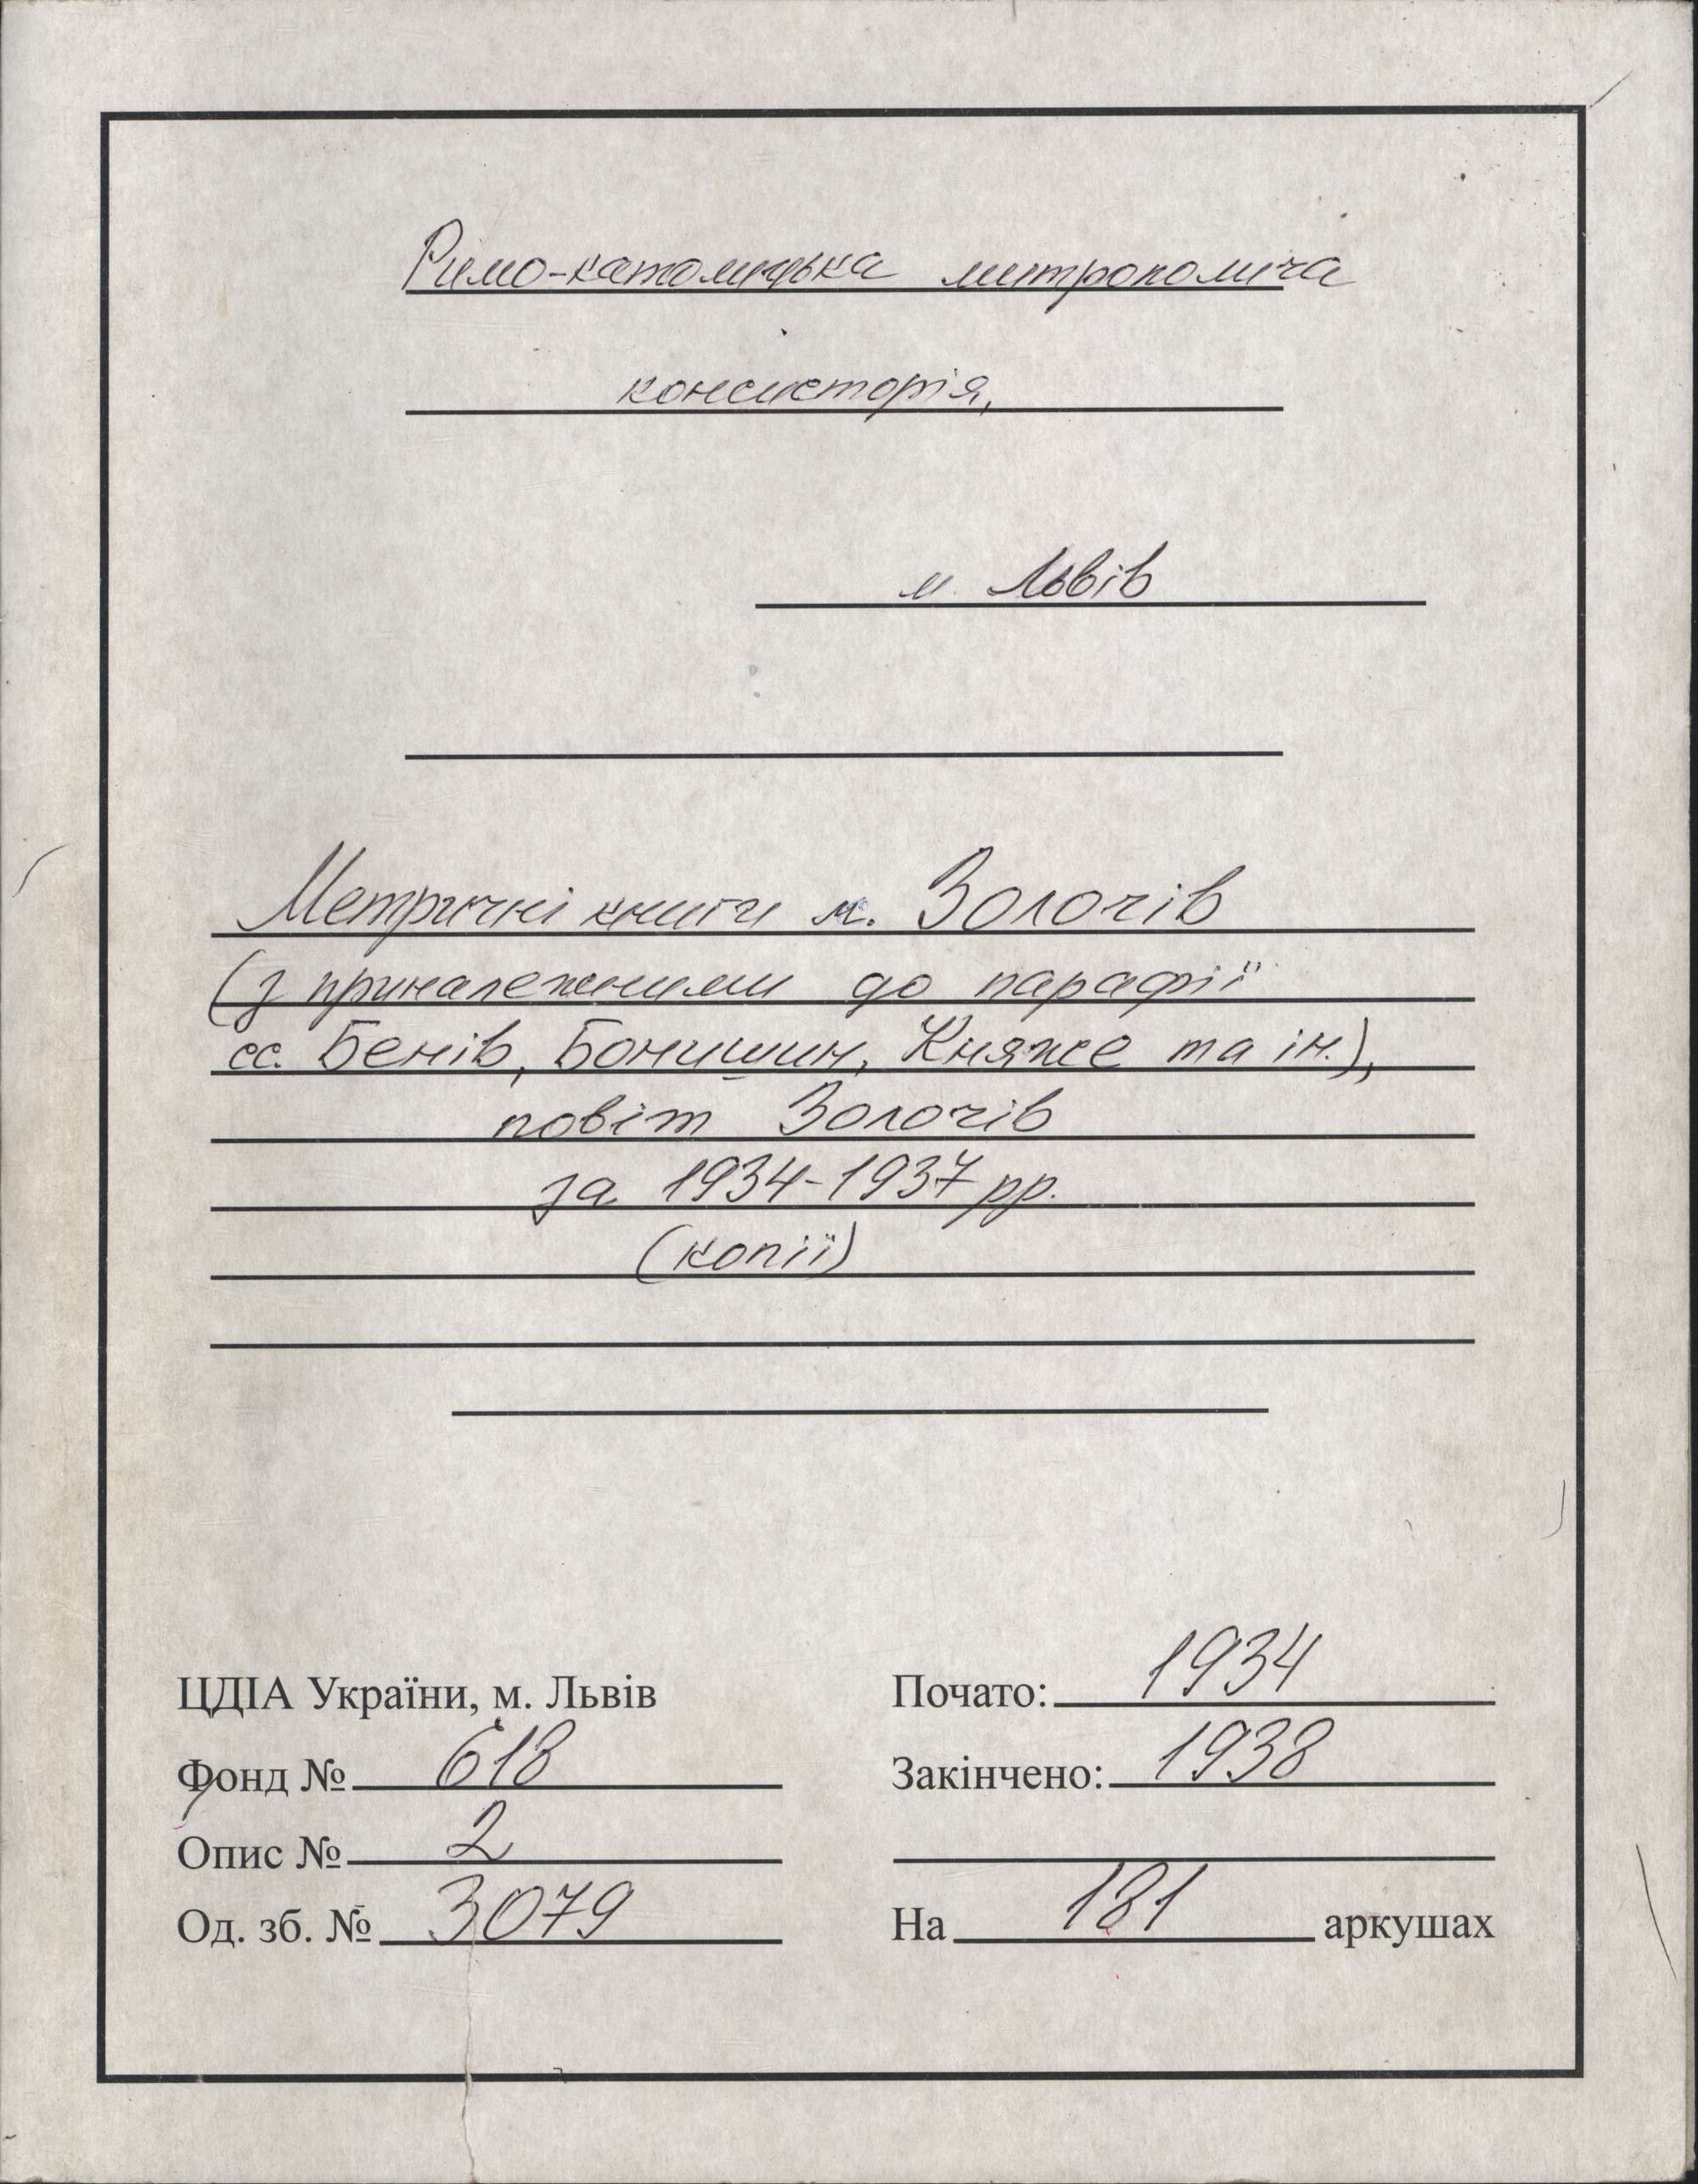 Римо-католицька митрополича
консисторія,
м. Львів
Метричні книги м. Золочів
(з приналежними до парафії
сс. Бенів, Бонишин, Княже та ін.),
повіт Золочів
за 1934-1937 рр.
(копії)
ЦДІА України, м. Львів
Почато: 1934
Фонд № 618
Закінчено: 1938
Опис № 2
Од. зб. № 3079
На 181 аркушах